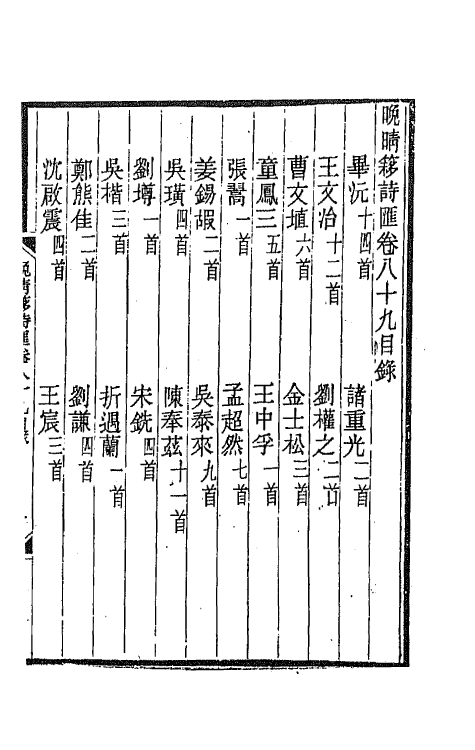 晚晴簃詩匯卷八十九目錄
畢沅十四首　諸重光二首
王文治十二首　劉權之二首
曹文埴六首　金士松三首
童鳳三五首　王中孚一首
張翯一首　孟超然七首
姜錫嘏二首　吳泰來九首
吳璜四首　陳奉茲十一首
劉墫一首　宋銑四首
吳楷三首　折遇蘭一首
鄭熊佳二首　劉謙四首
沈啟震四首　王宸三首